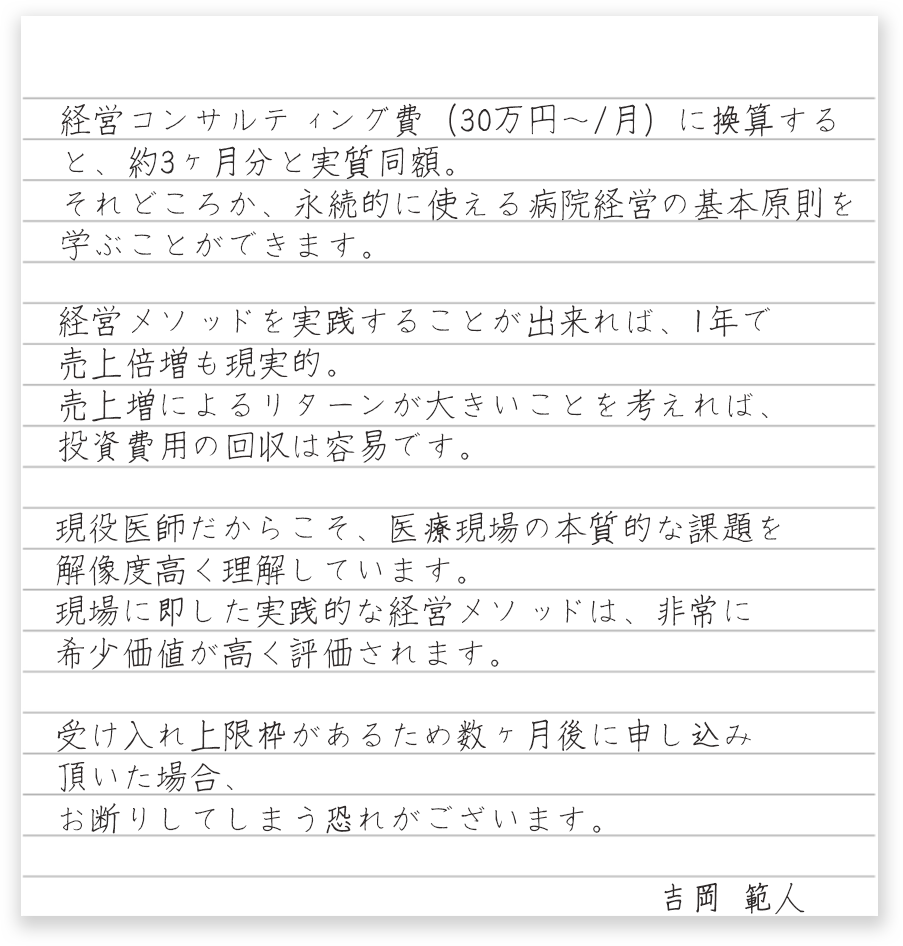 経営コンサルティング費（30万円〜/月）に換算する
と、約3ヶ月分と実質同額。
それどころか、永続的に使える病院経営の基本原則を
学ぶことができます。
経営メソッドを実践することが出来れば、1年で
売上倍増も現実的。
売上増によるリターンが大きいことを考えれば、
投資費用の回収は容易です。
現役医師だからこそ、医療現場の本質的な課題を
解像度高く理解しています。
現場に即した実践的な経営メソッドは、非常に
希少価値が高く評価されます。
受け入れ上限枠があるため数ヶ月後に申し込み
頂いた場合、
お断りしてしまう恐れがございます。
吉岡 範人